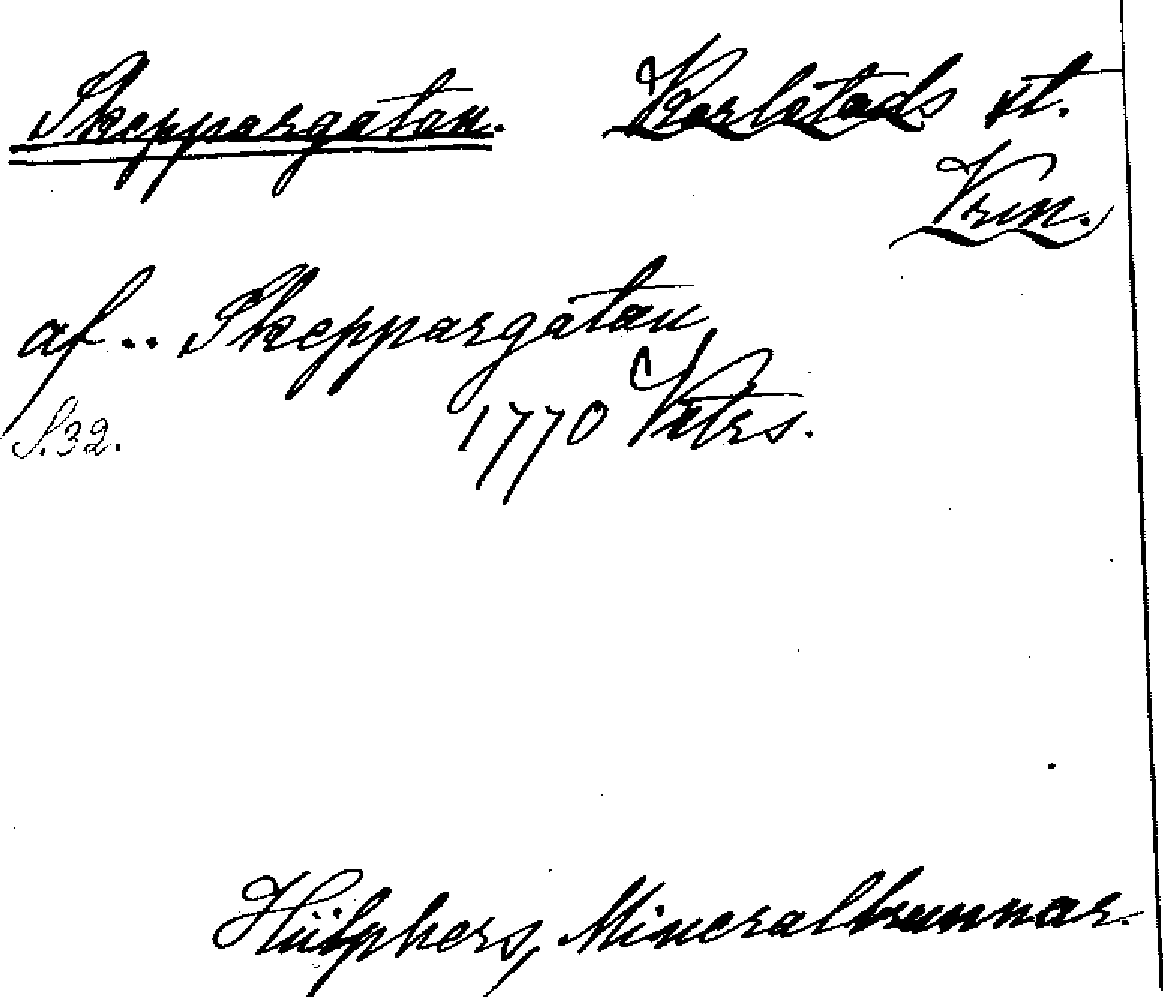 Skeppargatan. Karlstads st.
Vrm.
af.. Skeppargatan,
S.32. 1770 Vetrs.
Hülphers, Mineralbrunnar.